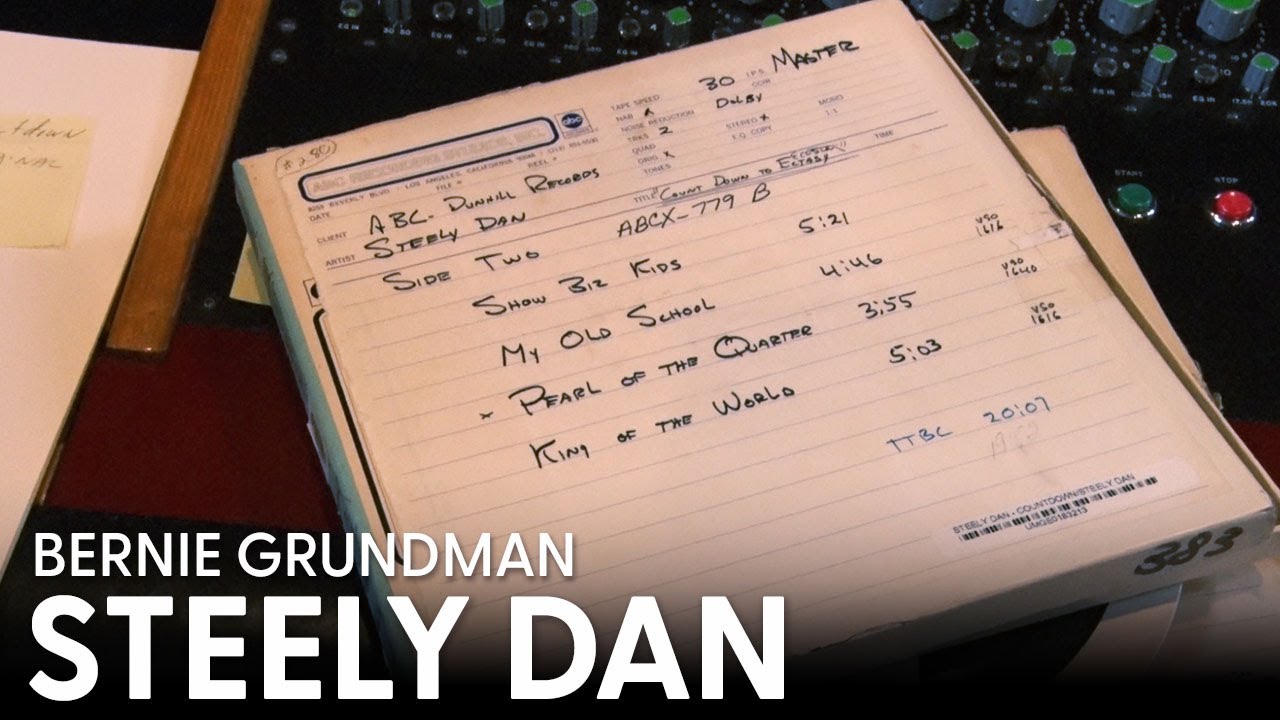 tdown
#280
abc
ABC RECORDING STUDIOS, INC.
8255 BEVERLY BLVD · LOS ANGELES, CALIFORNIA
DATE FILE # REEL #
TAPE SPEED 30 I.P.S. MASTER
NAB x COPY
NOISE REDUCTION DOLBY
TRKS 2 STEREO x MONO
QUAD E.Q. COPY 1:1
ORIG. x
TONES
CLIENT ABC-DUNHILL RECORDS TITLE "COUNT DOWN TO ECTASY" TIME
ARTIST STEELY DAN
SIDE TWO ABCX-779 B
SHOW BIZ KIDS 5:21 VSO 1616
MY OLD SCHOOL 4:46 VSO 1640
x PEARL OF THE QUARTER 3:55 VSO 1616
KING OF THE WORLD 5:03
TTBC 20:07
STEELY DAN - COUNTDOWN/STEELY DAN
UMGE0183213
383
START STOP
BERNIE GRUNDMAN
STEELY DAN